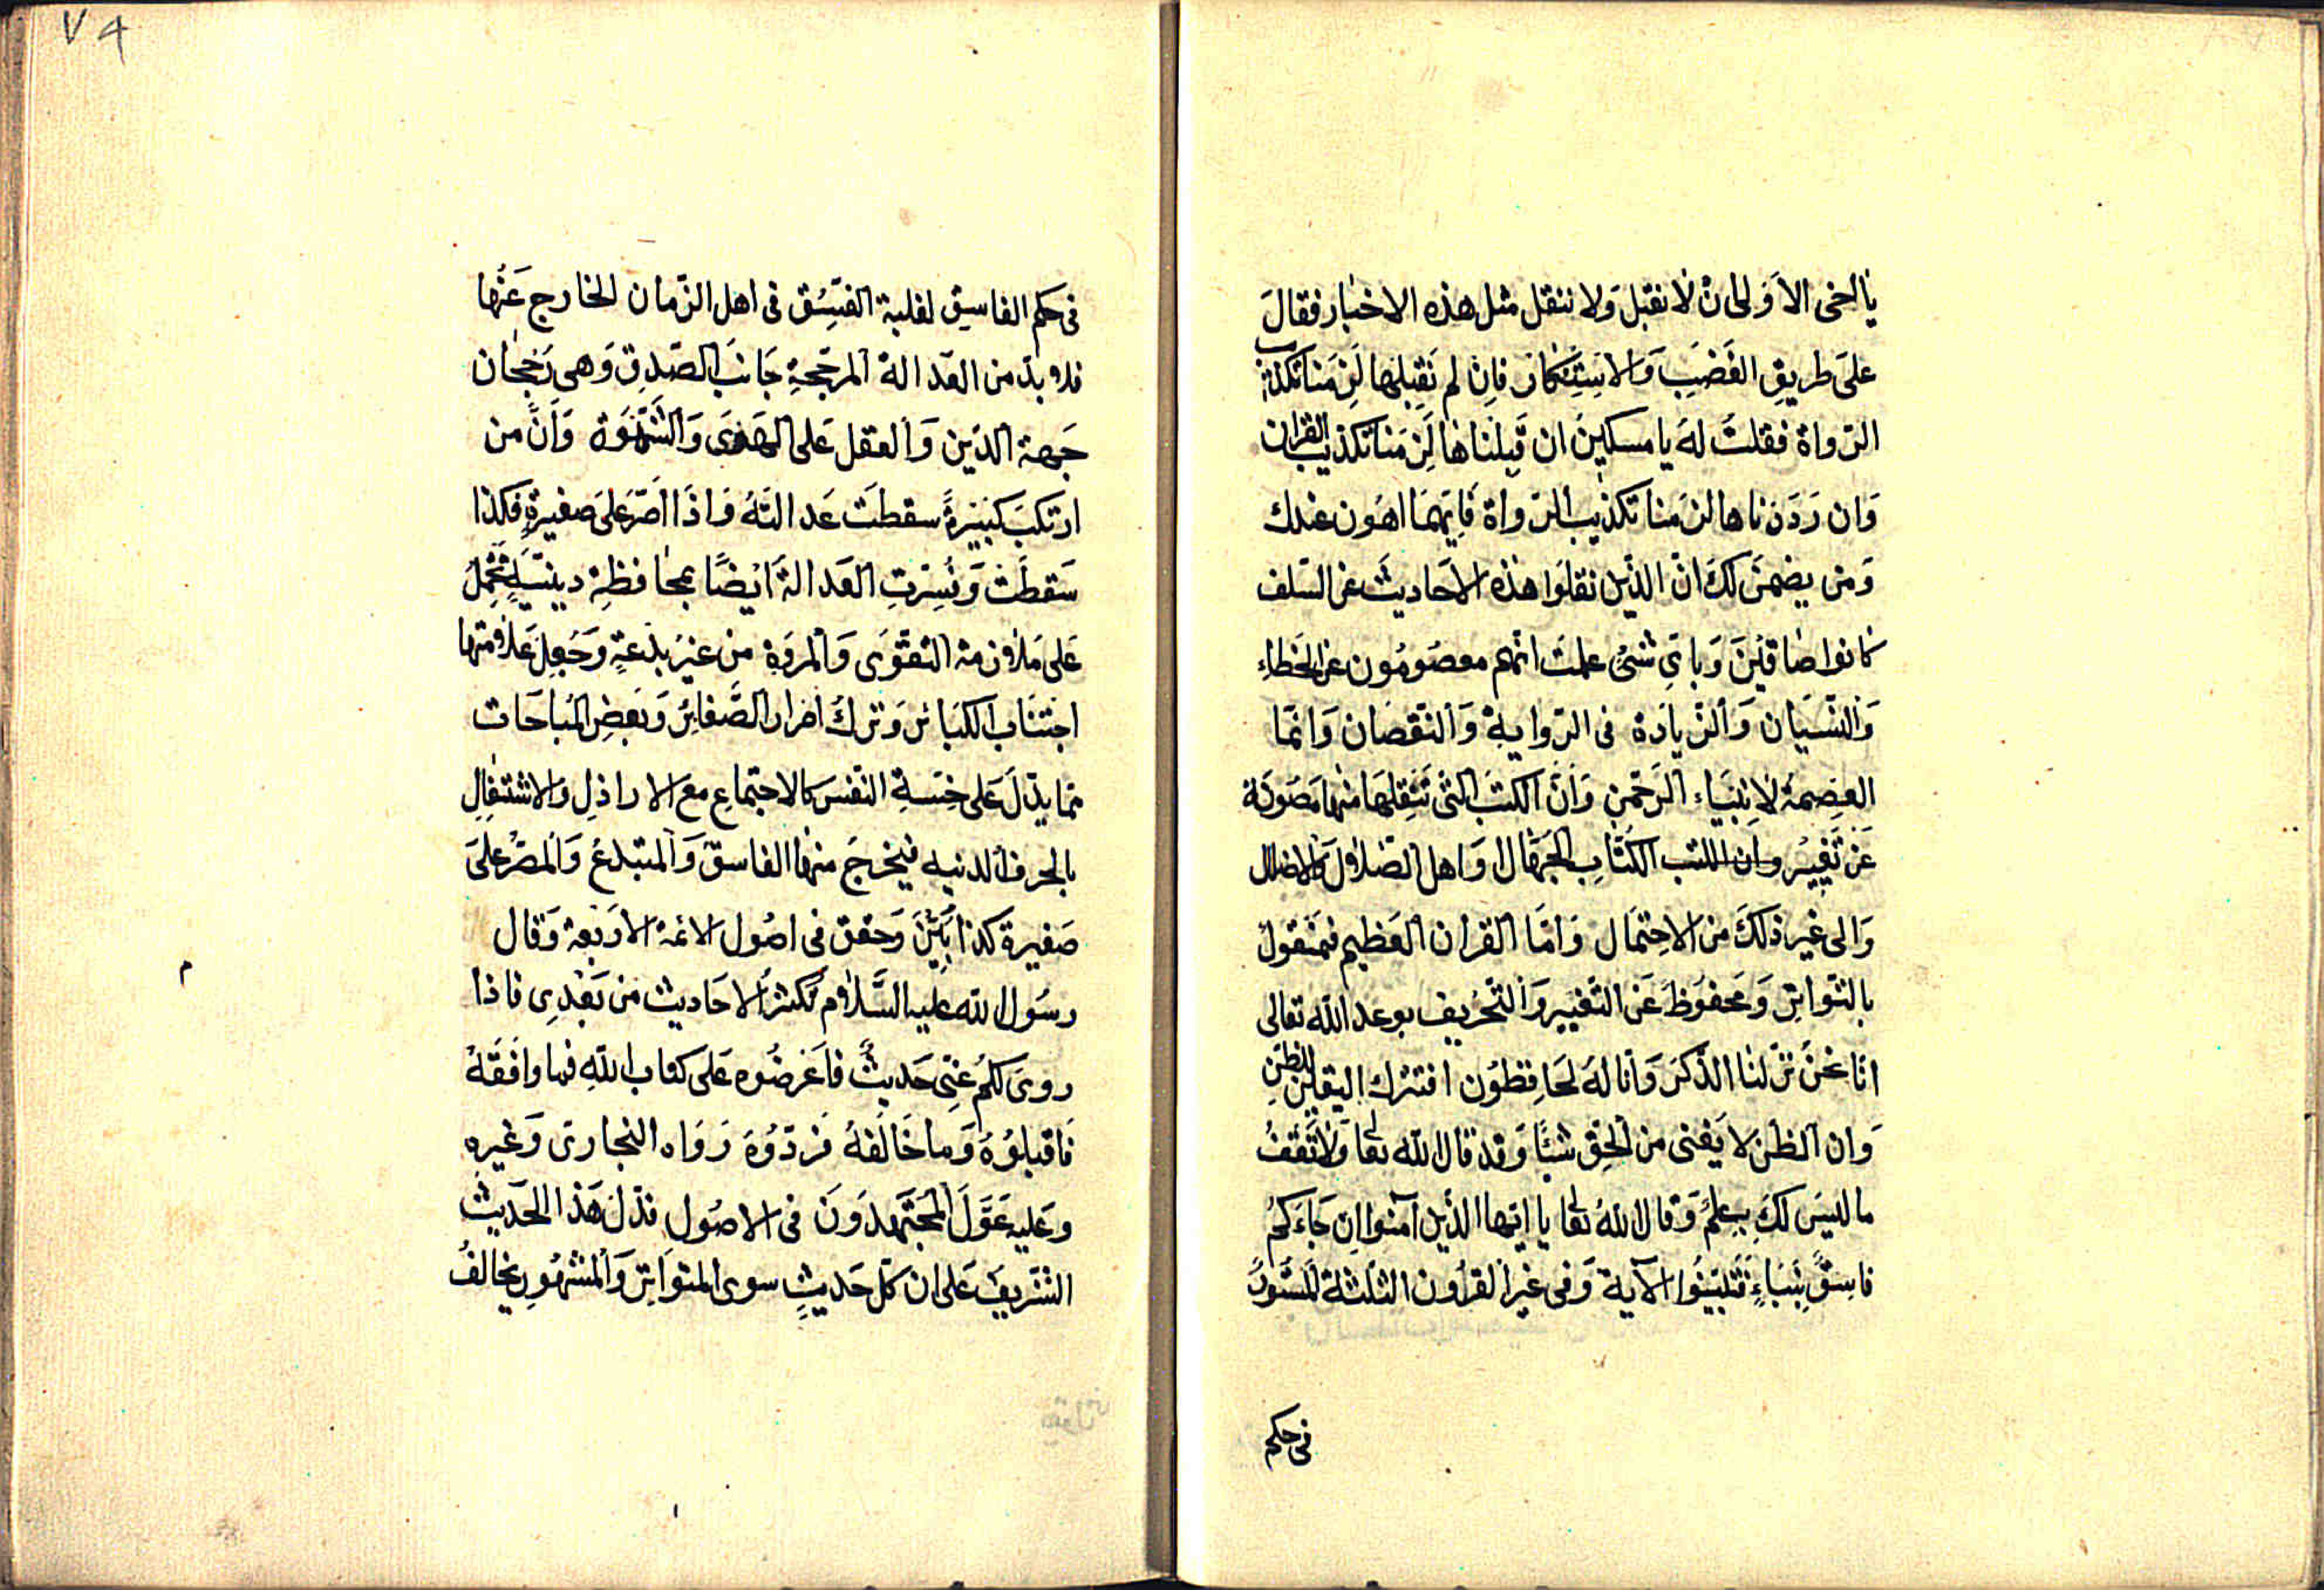 يا اخى الاَولى ان لا نقبل وَلا ننقل مثل هذه الاخبار فقالَ
علىَ طريقِ الغضَبِ وَالاستِنكار فاِن لم نَقبلها لَزِمَنا تكذيب
الرّواة فقلتُ لهَ يا مسكين ان قَبِلناها لَزِمَنا تكذيب القرآن
وَان رَدَدناها لزمَنا تكذيب الرّواة فايّهمَا اهوَن عندك
وَمن يضمن لكَ انّ الذّين نقلوا هذه الاحَاديثَ عن السّلف
كانوا صادقينَ وَباىّ شئٍ علمتَ انّهم معصُومُون عن الخطاء
وَالنّسيَان وَالزّيادَة فى الرّوايةِ وَالنّقصَان وَانّما
العِصمةُ لاِنبيَاء الرّحمنِ وَانّ الكتبَ التّى تنقلهَا منها مَصوَنة
عَن تَغييرِ وان الكتب الكُتّابِ الجهّال وَاهل الضّلال والاضلال
وَالى غير ذلكَ من الاحِتمَال وَامّا القرآن العَظيم فمنقولٌ
بالتّواترِ وَمحفوَظ عَن التّغييرِ وَالتّحريف بوعد الله تعالى
انّا نحنُ نزّلنا الذّكرَ وَانّا لهَ لحَافِظوُن افتترك اليقين للظنّ
وَانّ الظنّ لا يَغنى من الحقّ شيئًا وَقد قال الله تعالى وَلا تَقفُ
ما ليسَ لكَ بِه علمٌ وَقال اللهُ تعالى يا ايّها الذّين آمنوا ان جَاءَكُم
فاسِقٌ بنبَاءٍ فتَبيّنوُا الآية وَفى غير القرُون الثلثة المستوُر
فى حكم
٧٩
فى حكم الفاسِق لغلبة الفِسق فى اهل الزّمان الخارج عَنها
فلا بدّ من العَدالة المرجّحةِ جَانبَ الصّدقِ وَهى رجحَان
جَهة الدّين وَالعقل عَلى الهَوى وَالشّهوَة وَانّ من
ارتكبَ كبيرةً سقطَت عَدالتهُ وَاذَا اصرّ عَلىَ صغيرةٍ فكذا
سَقطَت وَفُسّرَتِ العَدالة ايَضًا بمحافظةٍ دينيّةٍ تحمِلُ
عَلى مَلازمة التّقوَى وَالمروّة من غيرِ بدعةٍ وَجُعِلَ عَلامتها
اجتنَاب الكبَائر وَتركُ اصرار الصَّغاير وَبعض المُباحَات
ممّا يدلّ عَلى خسّةِ النّفس كالاجتماعِ مع الاراذلِ وَالاشتغالِ
بالحرف الدنيه فيخرجَ منها الفاسقُ وَالمبتدعُ وَالمصرُّ علىَ
صَغيرة كذا بيّنَ وَحقق فى اصُول الائمة الاربَعة وَقال
رسَول الله عليه السَّلام تكثرُ الاحَاديث من بَعدِى فاذا
روىَ لكم عنّى حَديثٌ فاعرضُوه عَلى كتاب اللهِ فما وافَقهُ
فَاقبلوُهُ وَما خَالفهُ فرَدّوُهَ رَوَاه البخارى وَغيره
وعَليه عَوّلَ المجتَهدوَنَ فى الاصوُل فدلّ هَذا الحَديث
الشّريفَ عَلى ان كلّ حَديثٍ سوى المتوَاترِ وَالمشهُورِ يخالفُ